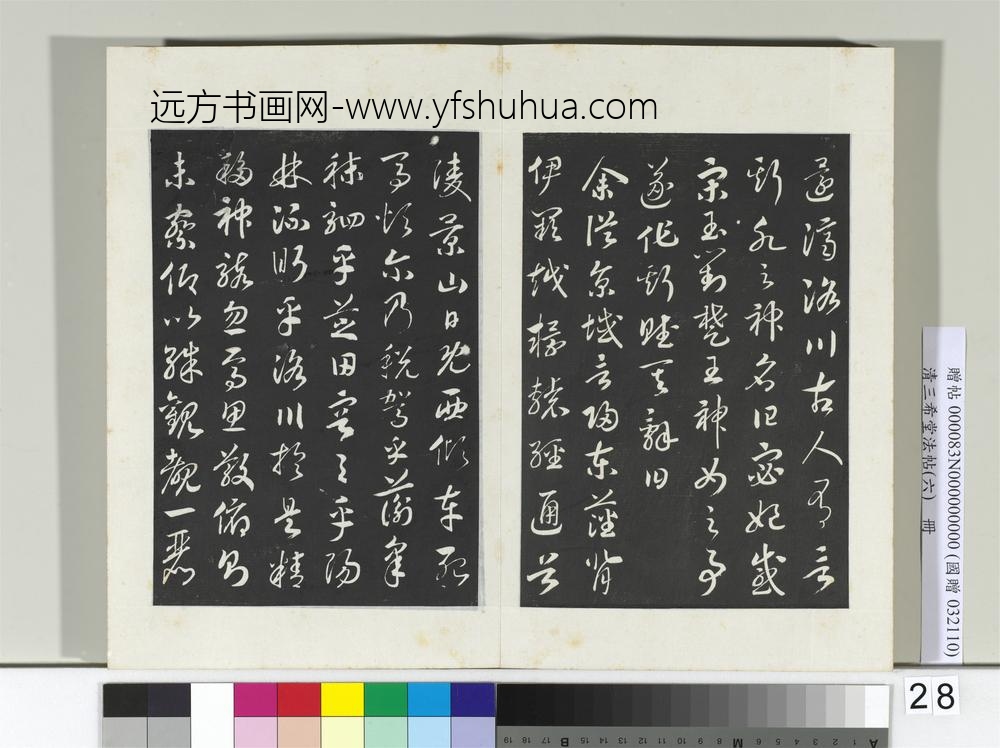 远方书画网-www.yfshuhua.com
還濟洛川古人有言
斯水之神名曰宓妃感
宋玉對楚王神女之事
遂作斯賦其辭曰
余從京域言歸東藩背
伊闕越轘轅經通谷
陵景山日既西傾車殆
馬煩爾乃稅駕乎蘅皋
秣駟乎芝田容與乎陽
林流眄乎洛川於是精
移神駭忽焉思散俯則
未察仰以殊觀覩一麗
贈帖 000083N000000000 (國贈 032110)
清三希堂法帖(六) 冊
28